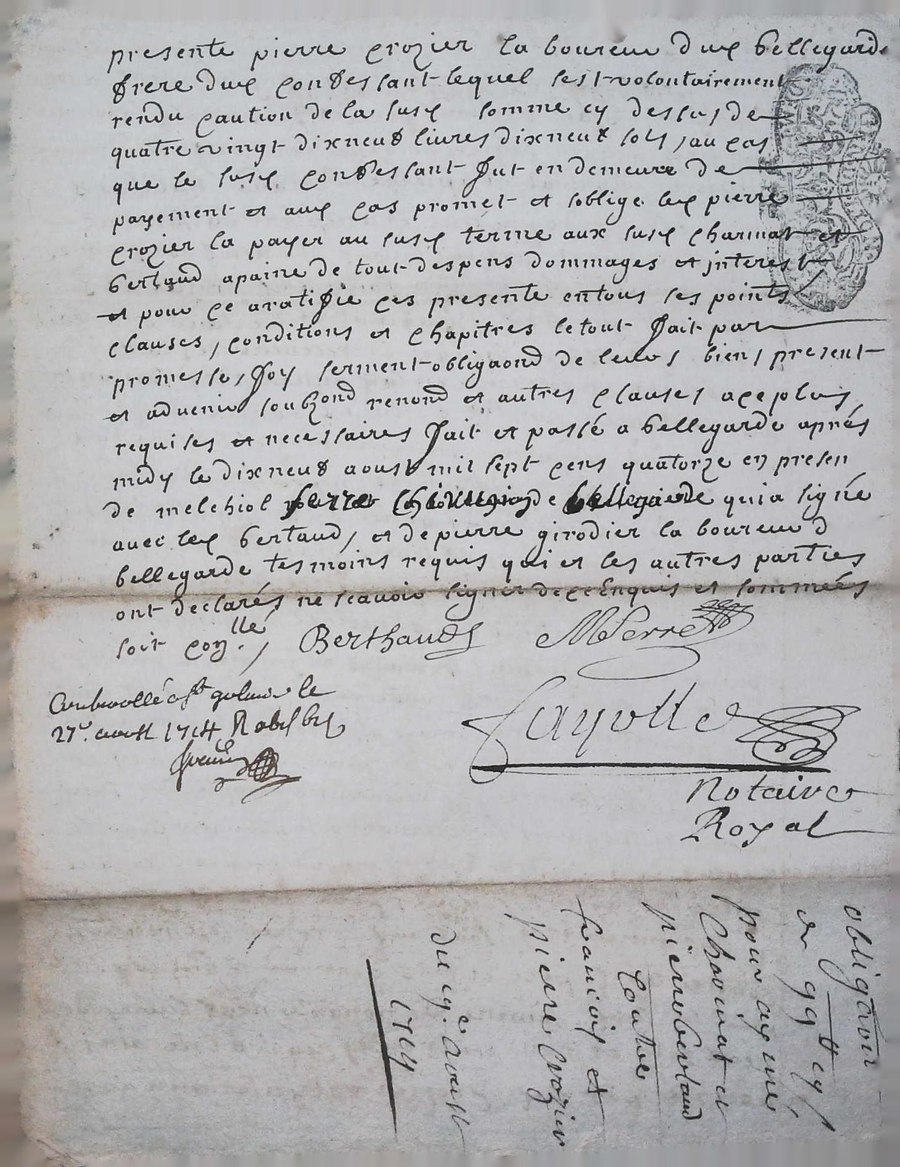 presente pierre crozier la boureur dud bellegarde
frere dud confessant lequel sest volontairement
rendu caution de la susd somme cy dessus de
quatre vingt dixneuf livres dixneuf sols, au cas
que le susd confessant fut en demeure de
payement et aud cas promet et soblige led pierre
crozier la payer au susd terme aux susd charmat et
bertaud apaine de tout despens dommages et jnterest
et pour ce aratifie ces presente entous ses points
clauses, conditions et chapitres le tout fait par
promesse, foy serment obligaond de leurs biens present
et advenir soubzond renond et autres clauses ace plus
requises et necessaires fait et passé a bellegarde aprés
midy le dixneuf aoust mil sept cens quatorze en presen
de melchiol perret de bellegarde qui a signé
avec led bertaud, et de pierre girodier la boureur d
bellegarde tesmoins requis qui et les autres parties
ont declarés ne scavoir signer de ce enquis et sommées
soit con.llé, Berthaud MPerret
Controllé a st galmier le
27e aoust 1714 Rd
Cayotte
Notaire
Royal
obligaon
de 99tt
pour aymé
Charmat et
pierre bertaud
Contre
francois et
pierre Crozier
du 19e aoust
1714